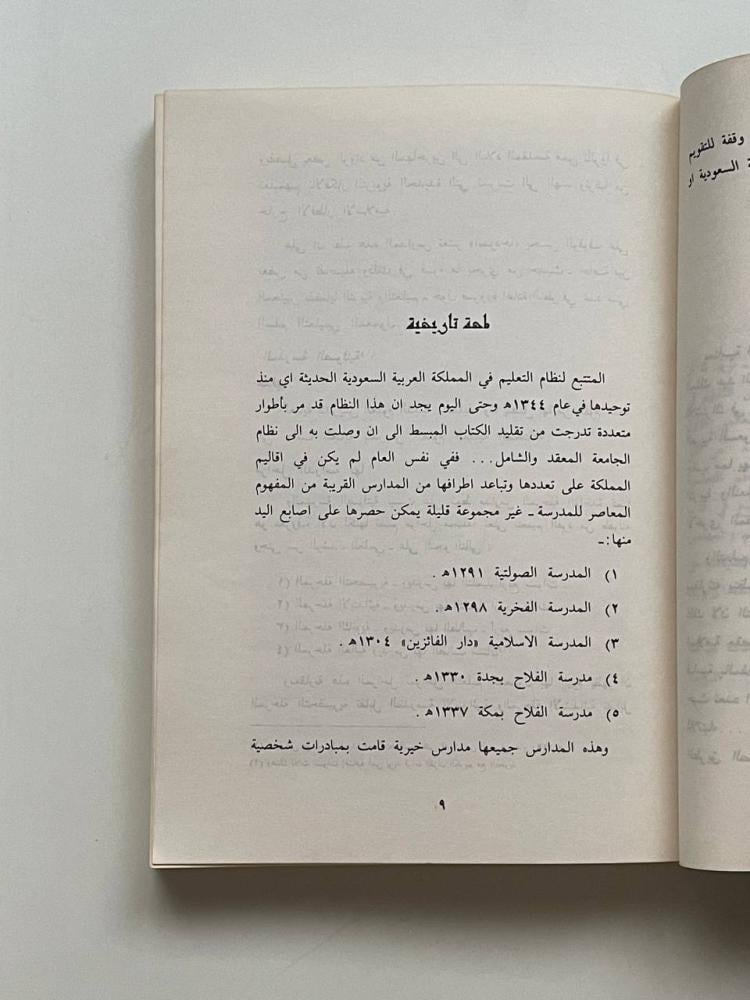 وقفة للتقويم
ة السعودية او
لمحة تاريخية
المتتبع لنظام التعليم في المملكة العربية السعودية الحديثة اي منذ
توحيدها في عام ١٣٤٤ﻫ وحتى اليوم يجد ان هذا النظام قد مر بأطوار
متعددة تدرجت من تقليد الكتاب المبسط الى ان وصلت به الى نظام
الجامعة المعقد والشامل... ففي نفس العام لم يكن في اقاليم
المملكة على تعددها وتباعد اطرافها من المدارس القريبة من المفهوم
المعاصر للمدرسة ـ غير مجموعة قليلة يمكن حصرها على اصابع اليد
منها:ـ
١) المدرسة الصولتية ١٢٩١ﻫ .
٢) المدرسة الفخرية ١٢٩٨ﻫ .
٣) المدرسة الاسلامية «دار الفائزين» ١٣٠٤ﻫ .
٤) مدرسة الفلاح بجدة ١٣٣٠ﻫ .
٥) مدرسة الفلاح بمكة ١٣٣٧ﻫ .
وهذه المدارس جميعها مدارس خيرية قامت بمبادرات شخصية
٩